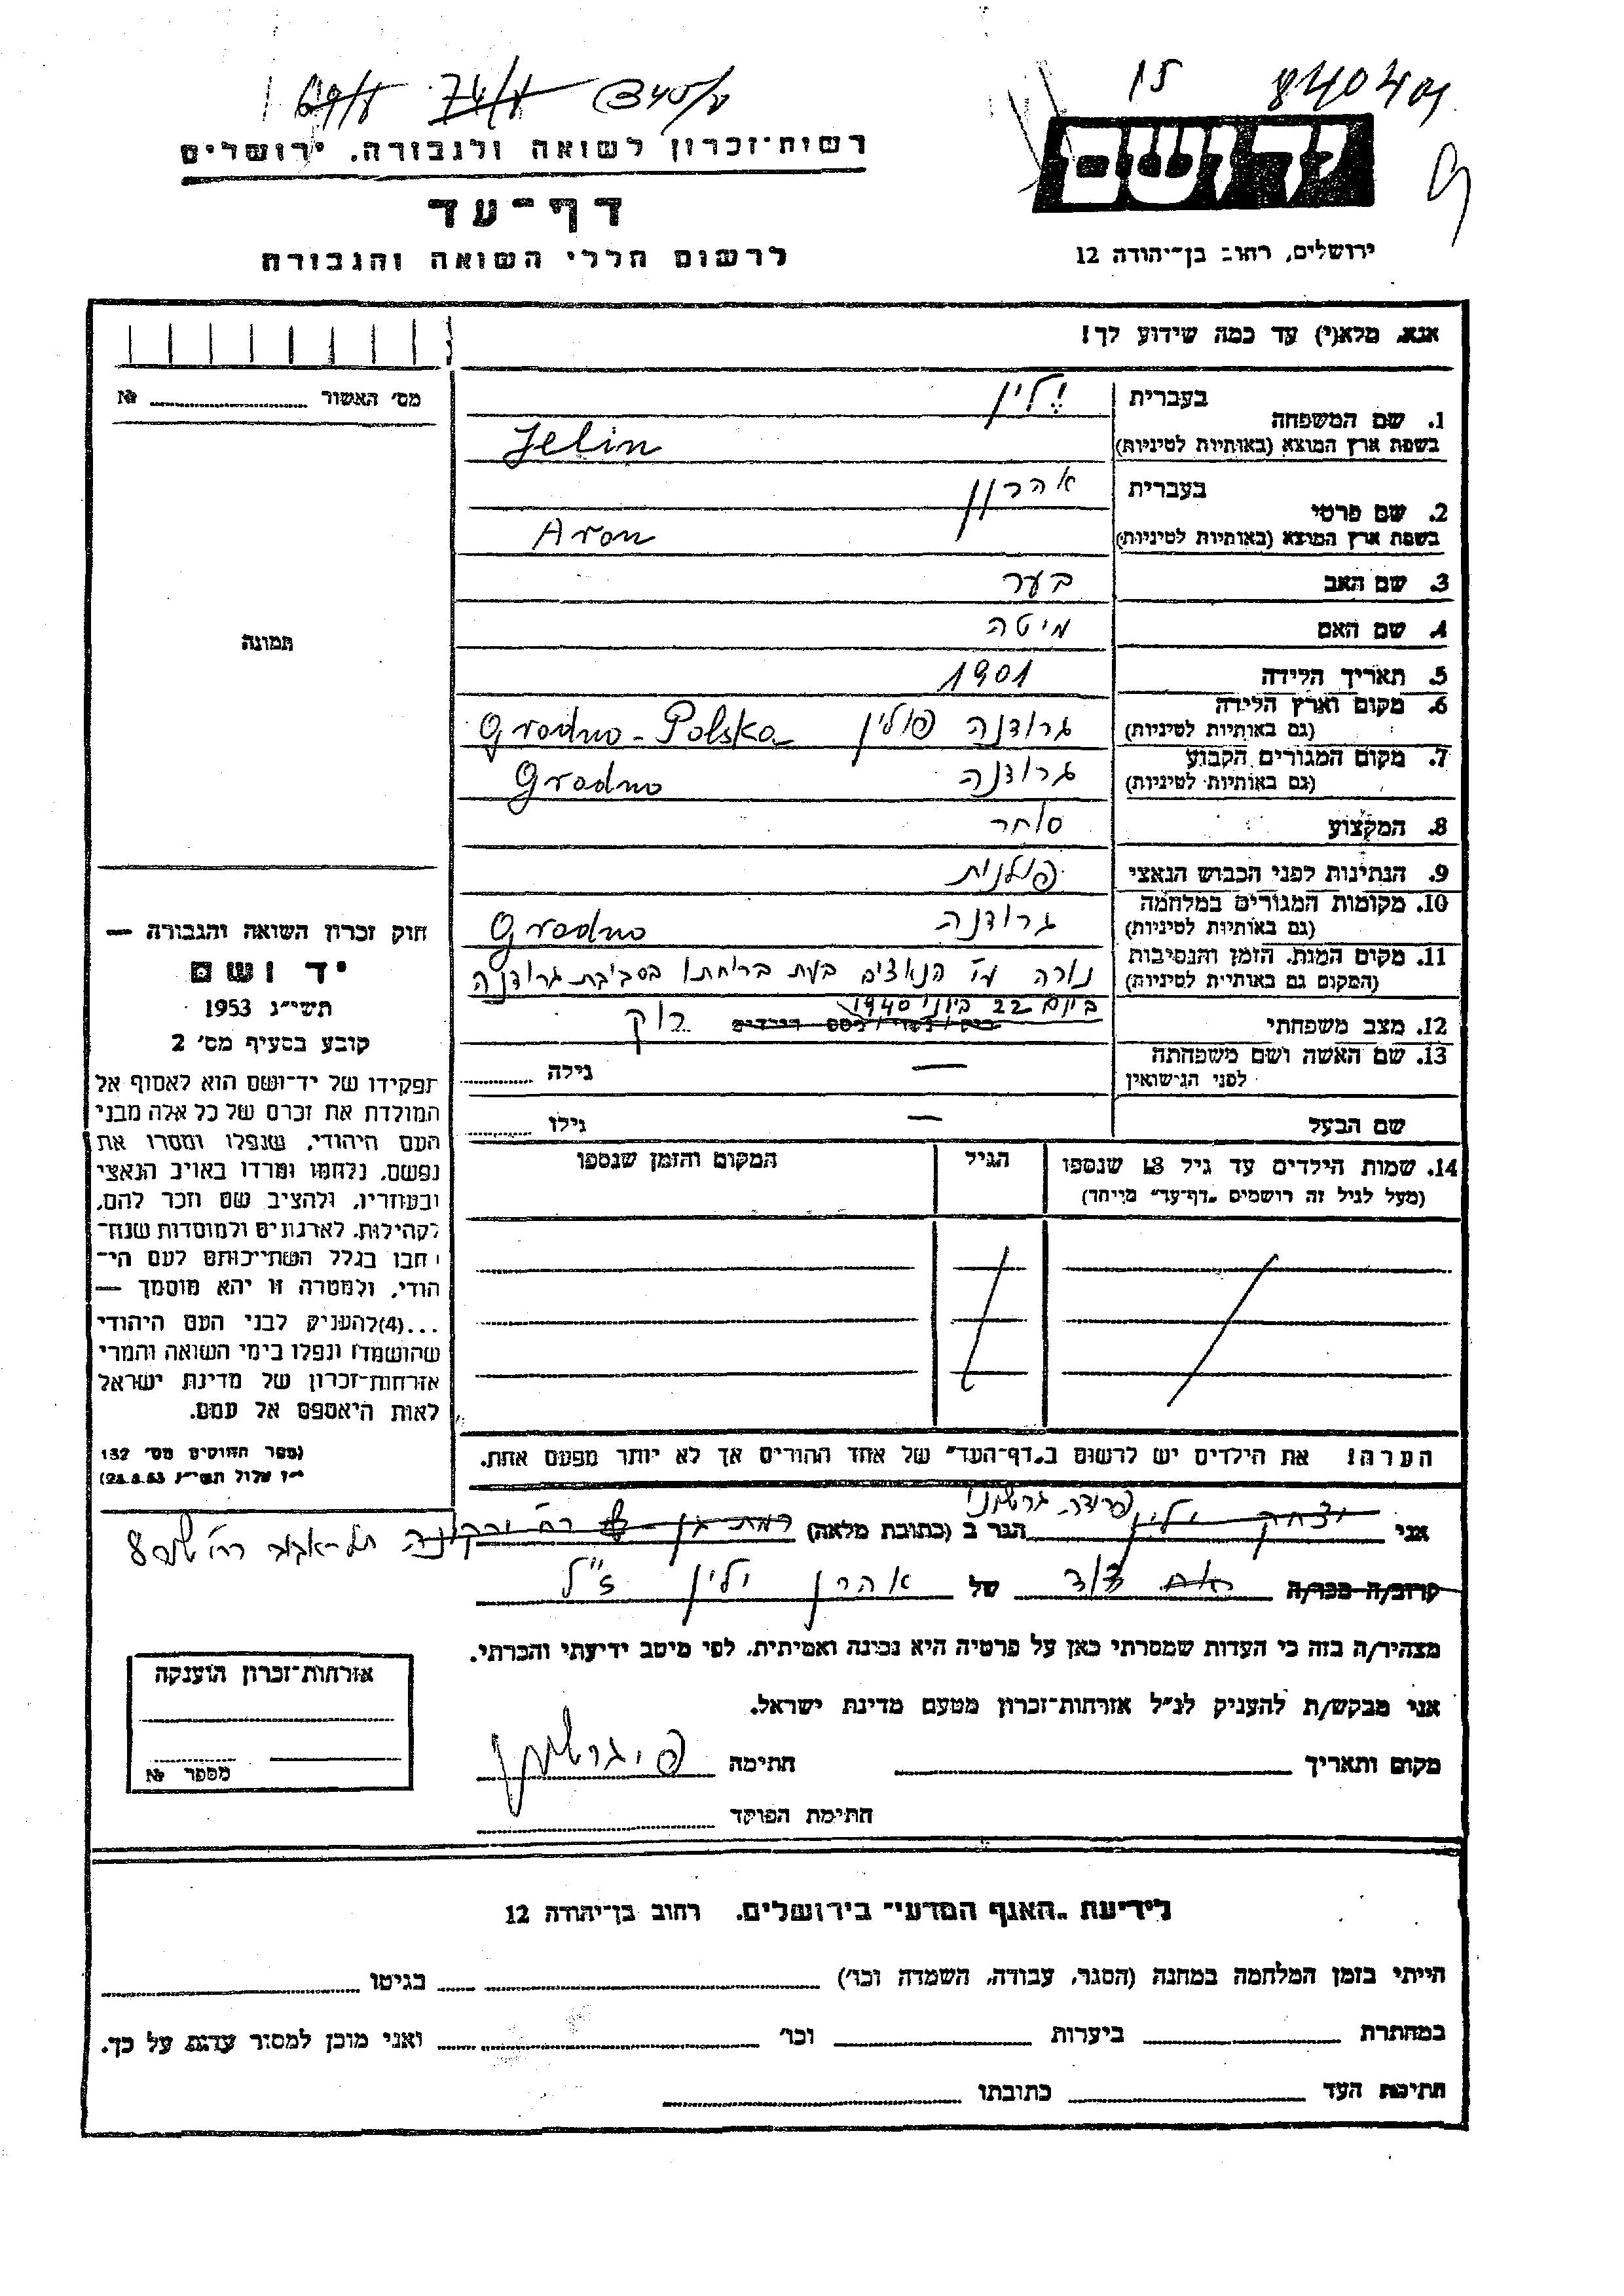 15 84040
69/8 74/8 340/8
רשות־זכרון לשואה ולגבורה, ירושלים
יד ושם
דף־עד
לרשום חללי השואה והגבורה
ירושלים, רחוב בן־יהודה 12
אנא, מלא(י) עד כמה שידוע לך!
מס׳ האשור №
תמונה
1. שם המשפחה
בעברית ילין
בשפת ארץ המוצא (באותיות לטיניות) Jelin
2. שם פרטי
בעברית אהרון
בשפת ארץ המוצא (באותיות לטיניות) Aron
3. שם האב בער
4. שם האם מיטה
5. תאריך הלידה 1901
6. מקום וארץ הלידה גרודנה פולין Grodno - Polska
(גם באותיות לטיניות)
7. מקום המגורים הקבוע גרודנה Grodno
(גם באותיות לטיניות)
8. המקצוע סוחר
9. הנתינות לפני הכבוש הנאצי פולנית
10. מקומות המגורים במלחמה גרודנה Grodno
(גם באותיות לטיניות)
11. מקום המות, הזמן והנסיבות נורה ע״י הנאצים בעת בריחתו בסביבת גרודנה
(המקום גם באותיות לטיניות) ביום 22 ביוני 1940
12. מצב משפחתי רוק
13. שם האשה ושם משפחתה — גילה
לפני הנישואין
שם הבעל — גילו
14. שמות הילדים עד גיל 18 שנספו הגיל המקום והזמן שנספו
(מעל לגיל זה רושמים „דף־עד״ מיוחד)
הערה! את הילדים יש לרשום ב„דף־העד״ של אחד ההורים אך לא יותר מפעם אחת.
חוק זכרון השואה והגבורה —
יד ושם
תשי״ג 1953
קובע בסעיף מס׳ 2
תפקידו של יד־ושם הוא לאסוף אל
המולדת את זכרם של כל אלה מבני
העם היהודי, שנפלו ומסרו את
נפשם, נלחמו ומרדו באויב הנאצי
ובעוזריו, ולהציב שם וזכר להם,
לקהילות, לארגונים ולמוסדות שנח־
רבו בגלל השתייכותם לעם הי־
הודי, ולמטרה זו יהא מוסמך —
...(4)להעניק לבני העם היהודי
שהושמדו ונפלו בימי השואה והמרי
אזרחות־זכרון של מדינת ישראל
לאות היאספם אל עמם.
(ספר החוקים מס׳ 132
י״ז אלול תשי״ג 28.8.53)
אני יצחק ילין פרידה גרשוני הגר ב (כתובת מלאה) רמת גן תל־אביב
קרוב/ה מכר/ה אח דוד של אהרן ילין ז״ל
מצהיר/ה בזה כי העדות שמסרתי כאן על פרטיה היא נכונה ואמיתית, לפי מיטב ידיעתי והכרתי.
אני מבקש/ת להעניק לנ״ל אזרחות־זכרון מטעם מדינת ישראל.
מקום ותאריך חתימה
חתימת הפוקד
אזרחות־זכרון הוענקה
מספר №
לידיעת „האגף המדעי״ בירושלים, רחוב בן־יהודה 12
הייתי בזמן המלחמה במחנה (הסגר, עבודה, השמדה וכו׳) בגיטו
במחתרת ביערות וכו׳ ואני מוכן למסור עדות על כך.
חתימת העד כתובתו